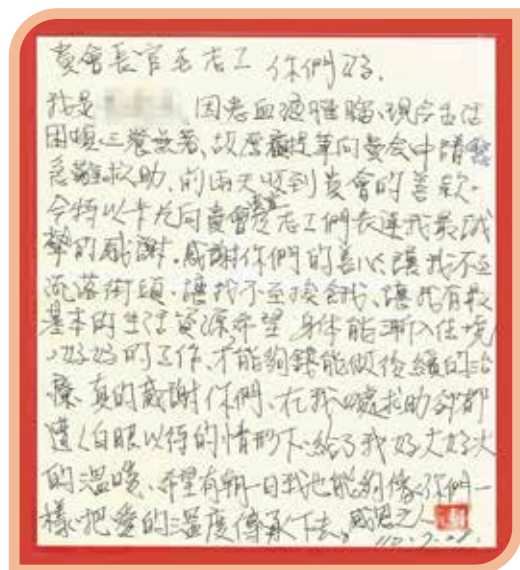 貴會長官志工 你們好.
我是 因患血液腫瘤、現今生活
困頓、三餐無著、故厚顏提筆向貴会申請
急難救助、前兩天收到貴會的善款.
今特以卡片向貴會長官志工們表達我最誠
摯的感謝.感謝你們的善心、讓我不至
流落街頭.讓我不至挨餓、讓我有最
基本的生活資源希望 身体能漸入佳境
好好的工作、才能夠錢能做後續的治
療、真的感謝你們、在我四處求助卻都
遭人白眼以待的情形下、給了我好大好大
的溫暖、希望有朝一日我也能夠像你們一
樣、把愛的溫度傳承下去。感恩之人